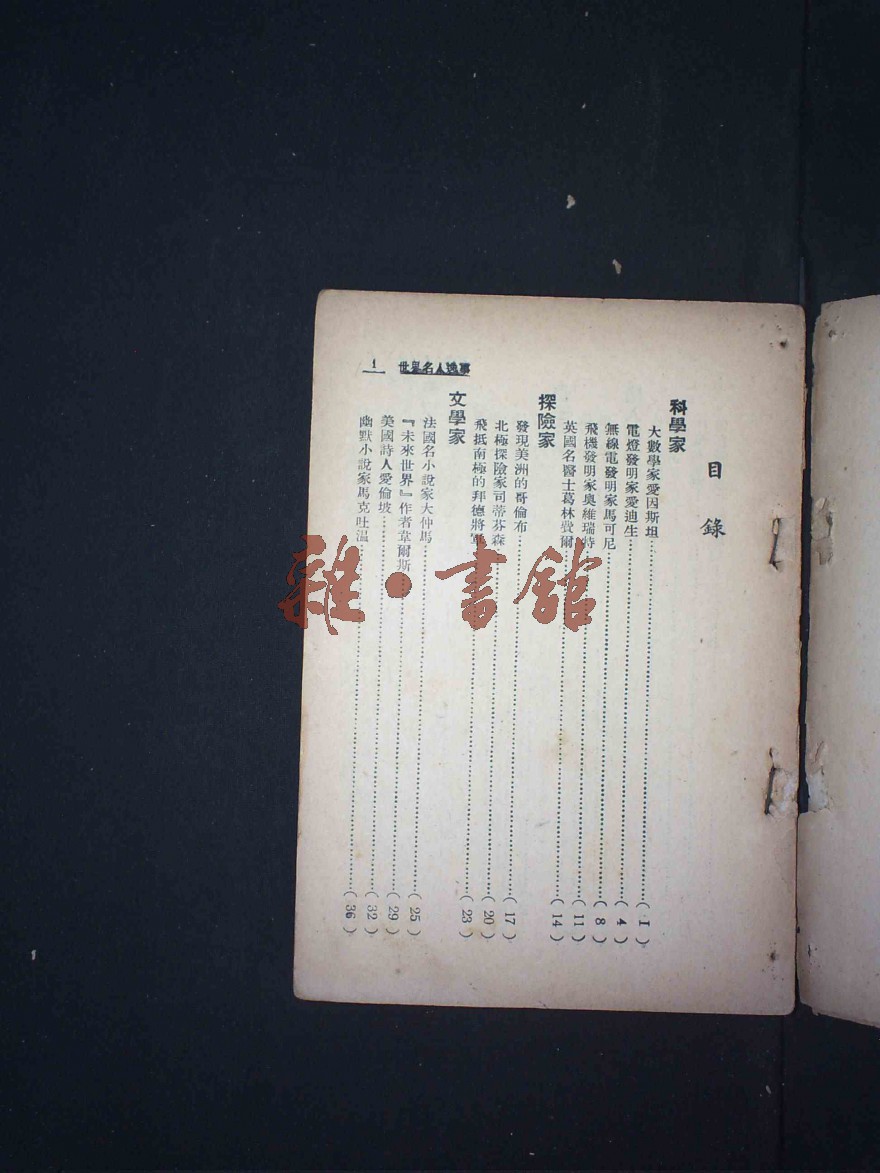 目錄
科學家
大數學家愛因斯坦……(1)
電燈發明家愛迪生……(4)
無線電發明家馬可尼……(8)
飛機發明家奧維瑞特……(11)
英國名醫士葛林費爾……(14)
探險家
發現美洲的哥倫布……(17)
北極探險家司蒂芬森……(20)
飛抵南極的拜德將軍……(23)
文學家
法國名小說家大仲馬……(25)
『未來世界』作者韋爾斯……(29)
美國詩人愛倫坡……(32)
幽默小說家馬克吐溫……(36)
1 世界名人逸事
雜·書館